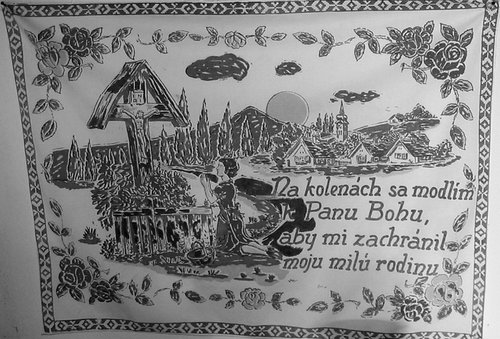 Na kolenách sa modlím
k Panu Bohu,
aby mi zachránil
moju milú rodinu